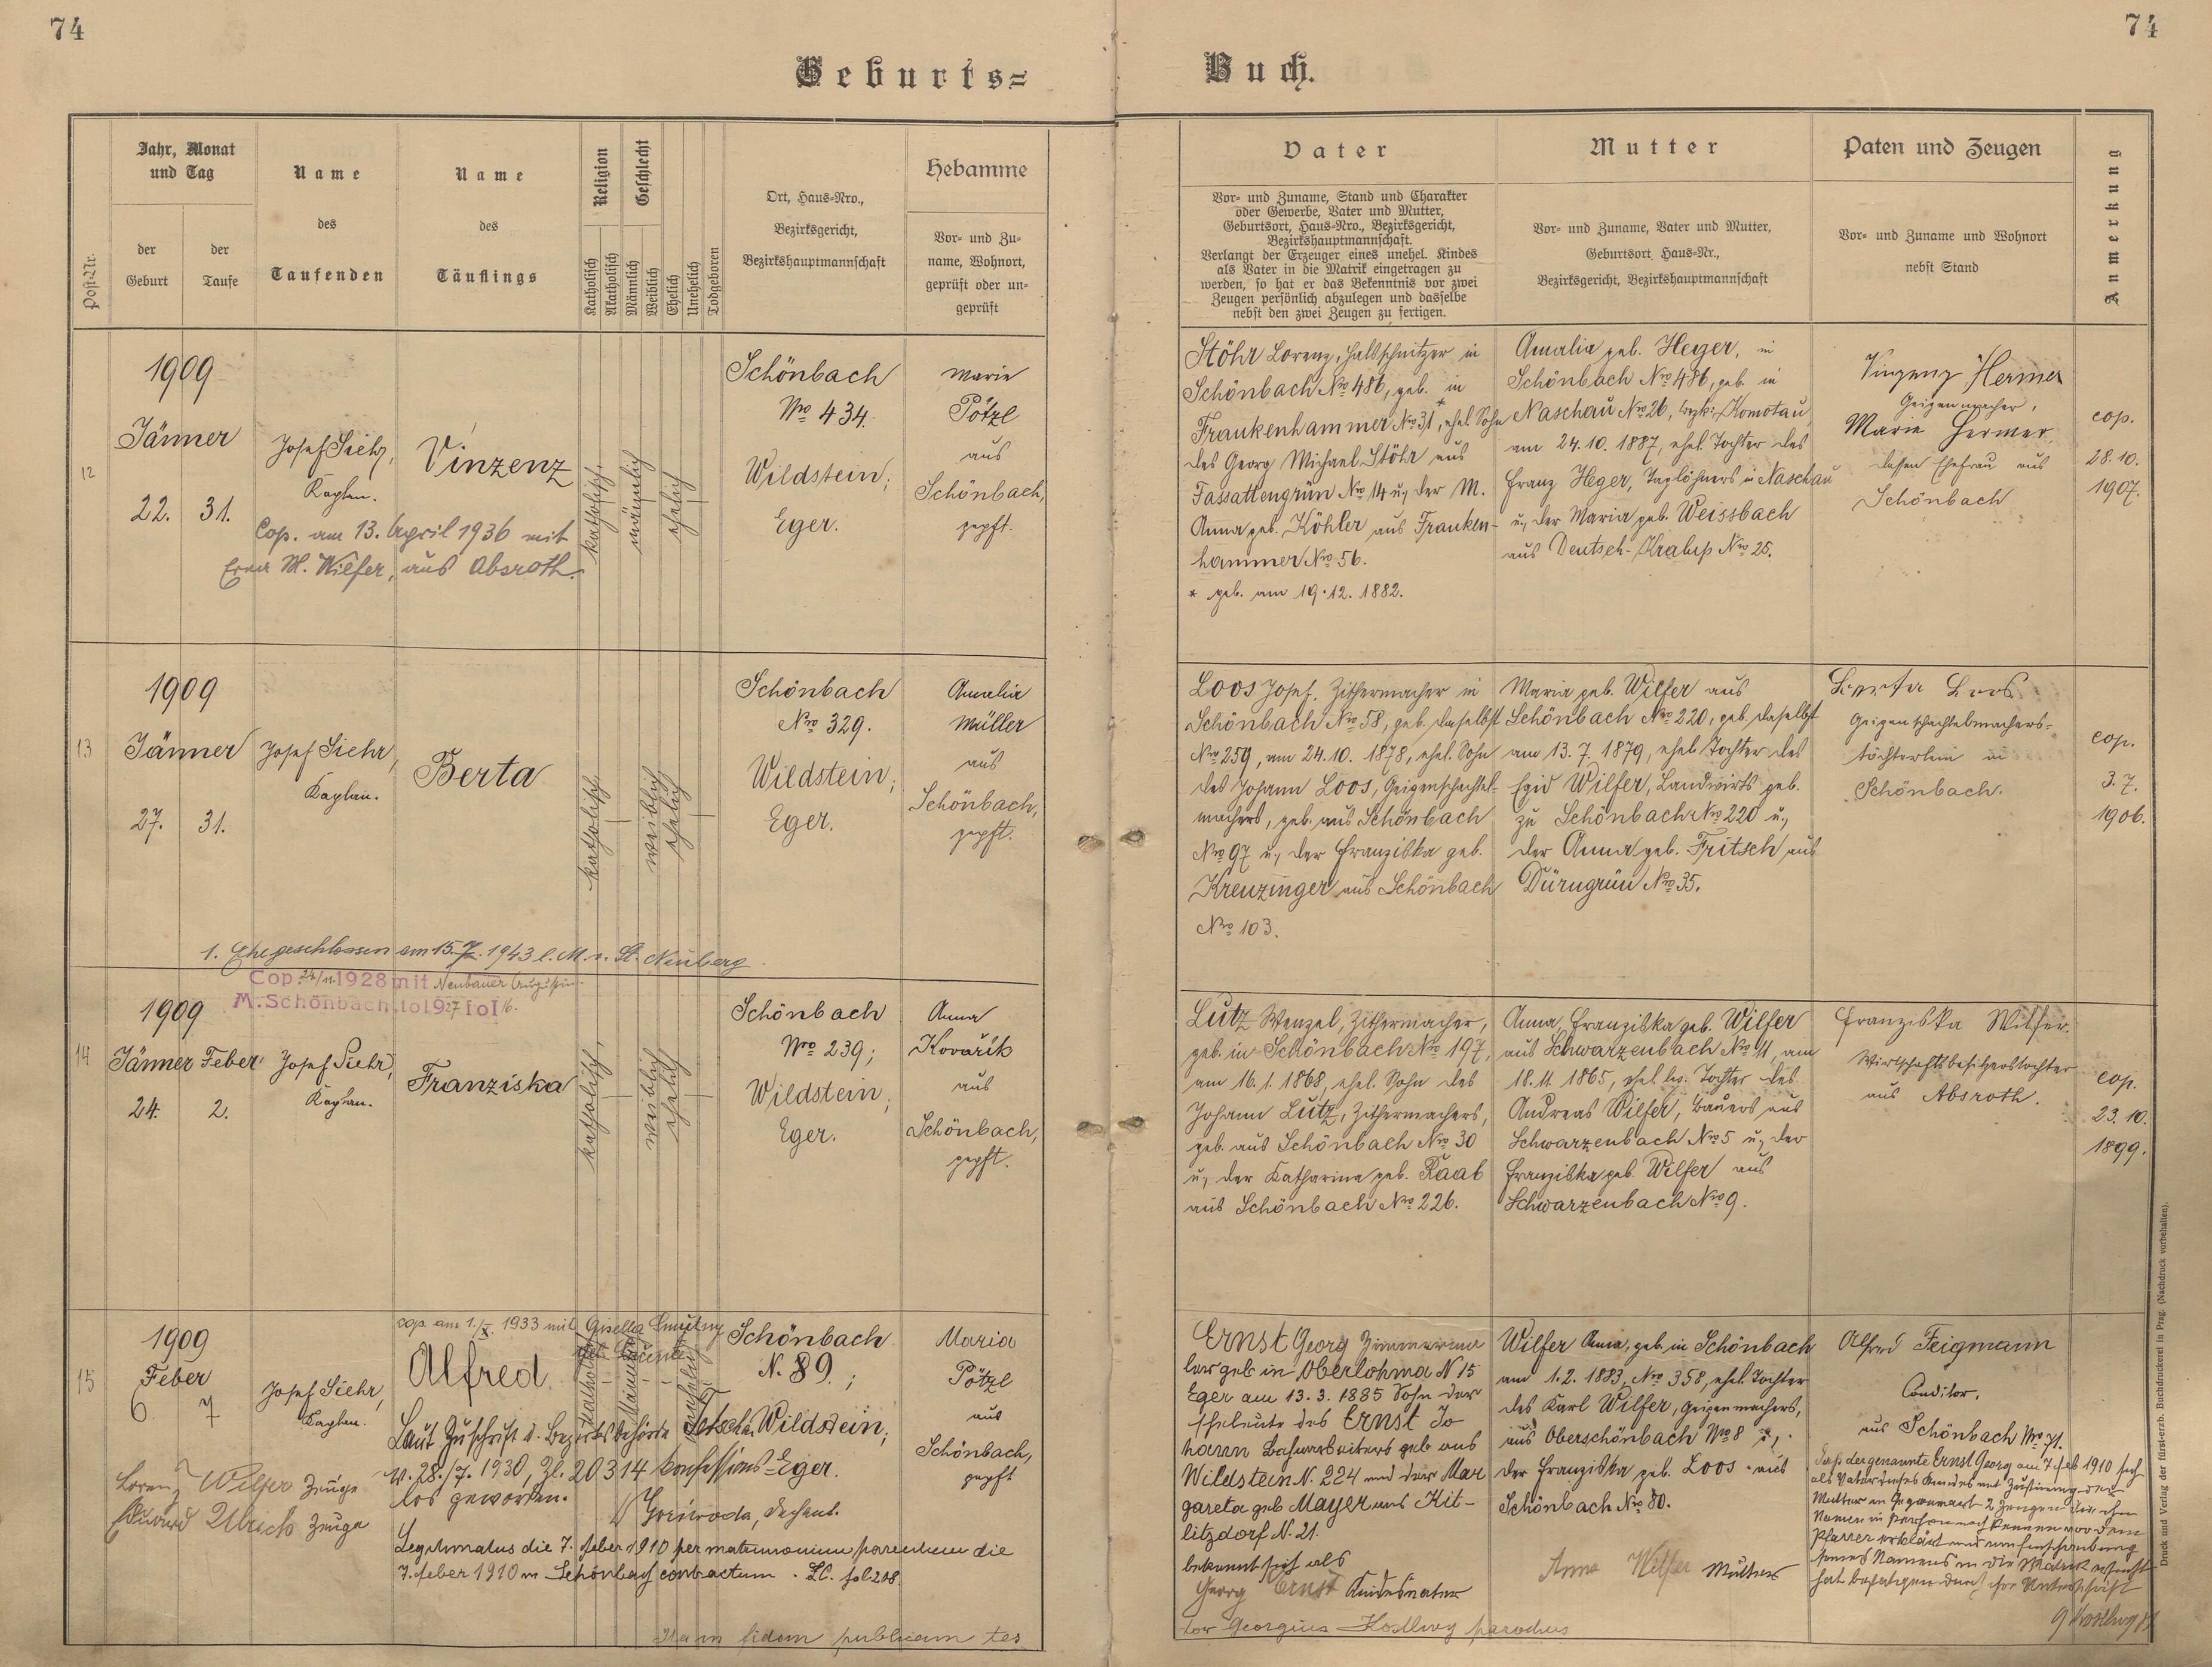 74
74
Geburts=
Buch.
Post-Nr.
Jahr, Monat
und Tag
der
Geburt
der
Taufe
Name
des
Taufenden
Name
des
Täuflings
Religion
Katholisch
Akatholisch
Geschlecht
Männlich
Weiblich
Ehelich
Unehelich
Todgeboren
Ort, Haus-Nro.,
Bezirksgericht,
Bezirkshauptmannschaft
Hebamme
Vor- und Zu-
name, Wohnort,
geprüft oder un-
geprüft
Vater
Vor- und Zuname, Stand und Charakter
oder Gewerbe, Vater und Mutter,
Geburtsort, Haus-Nro., Bezirksgericht,
Bezirkshauptmannschaft.
Verlangt der Erzeuger eines unehel. Kindes
als Vater in die Matrik eingetragen zu
werden, so hat er das Bekenntnis vor zwei
Zeugen persönlich abzulegen und dasselbe
nebst den zwei Zeugen zu fertigen.
Mutter
Vor- und Zuname, Vater und Mutter,
Geburtsort, Haus-Nr.,
Bezirksgericht, Bezirkshauptmannschaft
Paten und Zeugen
Vor- und Zuname und Wohnort
nebst Stand
Anmerkung
12
1909
Jänner
22. 31.
Josef Siehr,
Kaplan.
Vinzenz
Cop. am 13. April 1936 mit
Erna M. Wilfer, aus Absroth.
katholisch,
männlich
ehelich
Schönbach
Nro 434.
Wildstein,
Eger.
Marie
Pötzl
aus
Schönbach,
gepft.
Stöhr Lorenz, Halsschnitzer in
Schönbach Nro 486, geb. in
Frankenhammer Nro 31*, ehel. Sohn
des Georg Michael Stöhr aus
Fassattengrün Nro 14 u, der M.
Anna geb. Köhler aus Franken-
hammer Nro 56.
* geb. am 19.12.1882.
Amalia geb. Heger, in
Schönbach Nro 486, geb. in
Naschau Nro 26, bzk: Komotau,
am 24.10.1887, ehel. Tochter des
Franz Heger, Taglöhners in Naschau
u, der Maria geb. Weissbach
aus Deutsch-Kralup Nro 25.
Vinzenz Hermer
Geigenmacher,
Marie Hermer,
dessen Ehefrau aus
Schönbach
cop.
28.10.
1907.
13
1909
Jänner
27. 31.
Josef Siehr,
Kaplan.
Berta
katholisch,
weiblich
ehelich
Schönbach
Nro 329.
Wildstein,
Eger.
Amalia
Müller
aus
Schönbach,
gepft.
Loos Josef, Zithermacher in
Schönbach Nro 58, geb. daselbst
Nro 259, am 24.10.1878, ehel. Sohn
des Johann Loos, Geigenschachtel-
machers, geb. aus Schönbach
Nro 97 u, der Franziska geb.
Kreuzinger aus Schönbach
Nro 103.
Maria geb. Wilfer aus
Schönbach Nro 220, geb. daselbst
am 13.7.1879, ehel. Tochter des
Egid Wilfer, Landwirts geb.
zu Schönbach Nro 220 u,
der Anna geb. Fritsch aus
Dürngrün Nro 35.
Berta Loos
Geigenschachtelmachers-
töchterlein in
Schönbach.
cop.
3.7.
1906.
1. Ehe geschlossen am 15. 1943 Neuberg
Cop. 24/11 1928 mit Neubauer
M. Schönbach to 1927 fol 16.
14
1909
Jänner Feber
24. 2.
Josef Siehr,
Kaplan.
Franziska
katholisch,
weiblich
ehelich
Schönbach
Nro 239;
Wildstein,
Eger.
Anna
Kovařik
aus
Schönbach,
gepft.
Lutz Wenzel, Zithermacher,
geb. in Schönbach Nro 197,
am 16.1.1868, ehel. Sohn des
Johann Lutz, Zithermachers,
geb. aus Schönbach Nro 30
u, der Katharina geb. Raab
aus Schönbach Nro 226.
Anna Franziska geb. Wilfer
aus Schwarzenbach Nro 11, am
18.11.1865, ehel. Tochter des
Andreas Wilfer, Bauers aus
Schwarzenbach Nro 5 u, der
Franziska geb. Wilfer aus
Schwarzenbach Nro 9.
Franziska Wilfer
Wirtschaftsbesitzerstochter
aus Absroth.
cop.
23.10.
1899.
15
1909
Feber
6 7
Josef Siehr,
Kaplan.
cop. am 1./X. 1933 mit Gisella
Alfred
Laut Zuschrift d. Bezirksbehörde Tetschen
v. 28./7. 1930, Zl. 20314 konfessions-
los geworden.
Dechant.
Lorenz Wilfer Zeuge
Eduard Ulrich Zeuge
Legitimatus die 7. Feber 1910 per matrimonium parentum die
7. Feber 1910 in Schönbach contractum. fol. 208.
Schönbach
N. 89;
Wildstein,
Eger.
Maria
Pötzl
aus
Schönbach,
gepft
Ernst Georg
geb in Oberlohma N 15
Eger am 13.3.1885 Sohn der
Eheleute des Ernst Jo
hann Bahnarbeiters geb aus
Wildstein N. 224 und der Mar
gareta geb Mayer aus Kit-
litzdorf N. 21.
bekennt sich als
Georg Ernst Kindesvater
Wilfer Anna, geb. in Schönbach
am 1.2.1883, Nro 358, ehel. Tochter
des Karl Wilfer, Geigenmachers,
aus Oberschönbach Nro 8 u,
der Franziska geb. Loos aus
Schönbach Nro 80.
Anna Wilfer Mutter
Alfred Feigmann
Conditor,
aus Schönbach Nro 71.
Daß der genannte Ernst Georg am 7. Feb 1910 sich
als Vater dieses Kindes mit Zustimmung der
Mutter in Gegenwart 2 Zeugen die ihn
Namen in Person nach kennen vor dem
Pfarrer erklärt und um Einschreibung
seines Namens in die Matrik ersucht
hat bestätigen durch ihre Unterschrift
Ita in fidem publicam tes
tor Georgius Kostlivy parochus
Druck und Verlag der fürst-erzb. Buchdruckerei in Prag. (Nachdruck vorbehalten).